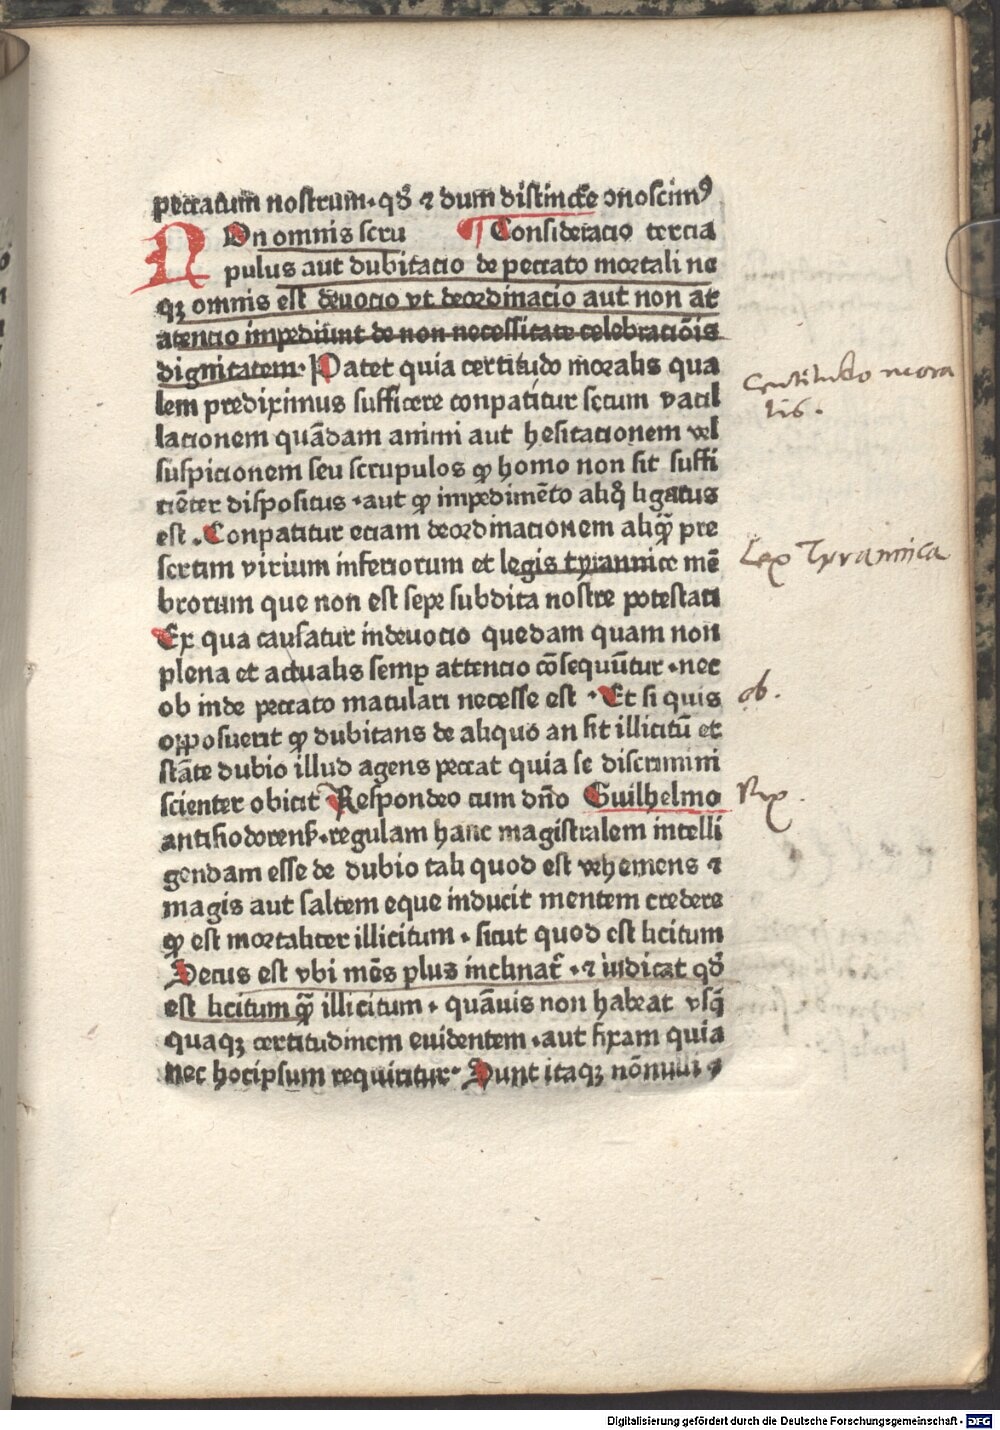 peccatum nostrum · qđ ⁊ dum distincte ↄnoscimꝰ
NOn omnis scru ¶ Consideracio tercia
pulus aut dubitacio de peccato mortali ne
qꝫ omnis est deuocio vt deordinacio aut non at
atencio impediunt de non necessitate celebracōis
dignitatem · Patet quia certitudo moralis qua
lem prediximus sufficere conpatitur secum vacil
lacionem quādam animi aut hesitacionem vel
suspicionem seu scrupulos ꝙ homo non sit suffi
ciēter dispositus · aut ꝙ impedimēto aliq̄ ligatus
est · Conpatitur eciam deordinacionem aliq̄ pre
sertim virium inferiorum et legis tyrannice mē
brorum que non est sepe subdita nostre potestati
Ex qua causatur indeuocio quedam quam non
plena et actualis semꝑ attencio cōsequūtur · nec
ob inde peccato maculari necesse est · Et si quis
opposuerit ꝙ dubitans de aliquo an sit illicitū et
stāte dubio illud agens peccat quia se discrimini
scienter obicit Respondeo cum dn̄o Guilhelmo
antisiodorenſ · regulam hanc magistralem intelli
gendam esse de dubio tali quod est vehemens ⁊
magis aut saltem eque inducit mentem credere
ꝙ est mortaliter illicitum · sicut quod est licitum
Secus est vbi mēs plus inclinat̄ · ⁊ iudicat qđ
est licitum q̄ illicitum · quāuis non habeat vsq̄
quaqꝫ certitudinem euidentem · aut fixam quia
nec hocipsum requiritur · Sunt itaqꝫ nōnulli ⁊
Certitudo mora
lis.
Lex Tyrannica
ob.
Rx.
Digitalisierung gefördert durch die Deutsche Forschungsgemeinschaft - DFG